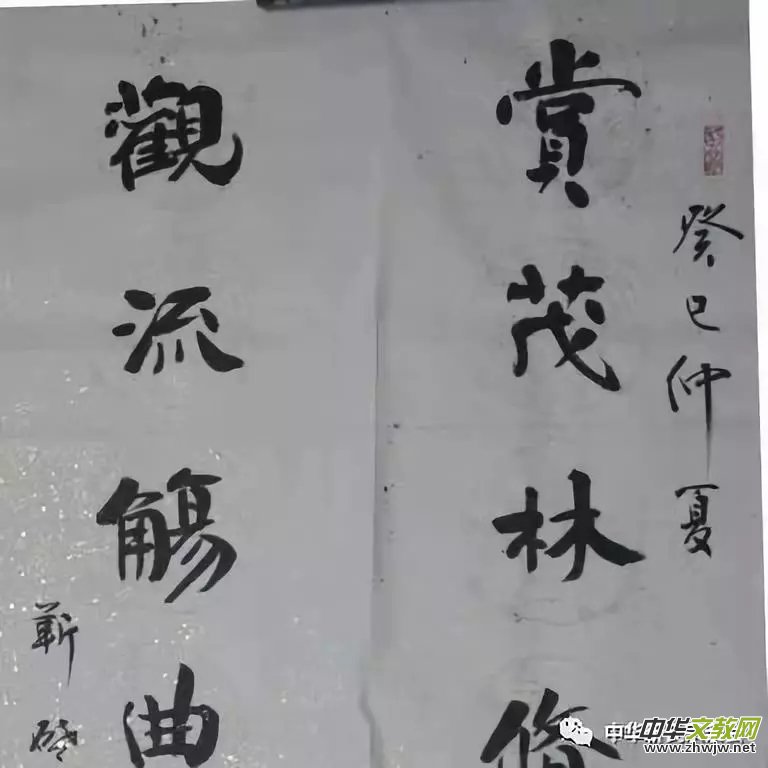 癸巳仲夏
賞茂林修
觀流觴曲
靳
中华文教网
www.zhwjw.net